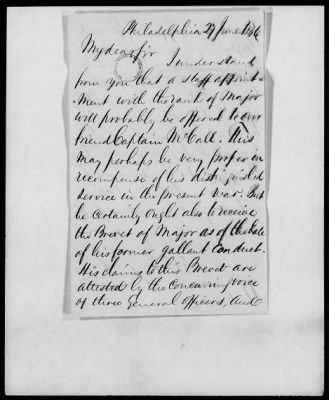 Philadelphia 29 June 1846
My dear Sir
I understand
from you that a staff appoint-
ment with the rank of Major
will probably be offered to our
friend Captain McCall. This
may perhaps be very proper in
recompense of his distinguished
service in the present war. But
he certainly ought also to receive
the Brevet of Major as of the date
of his former gallant conduct.
His claims to this Brevet are
attested by the concurring voice
of three General officers, and